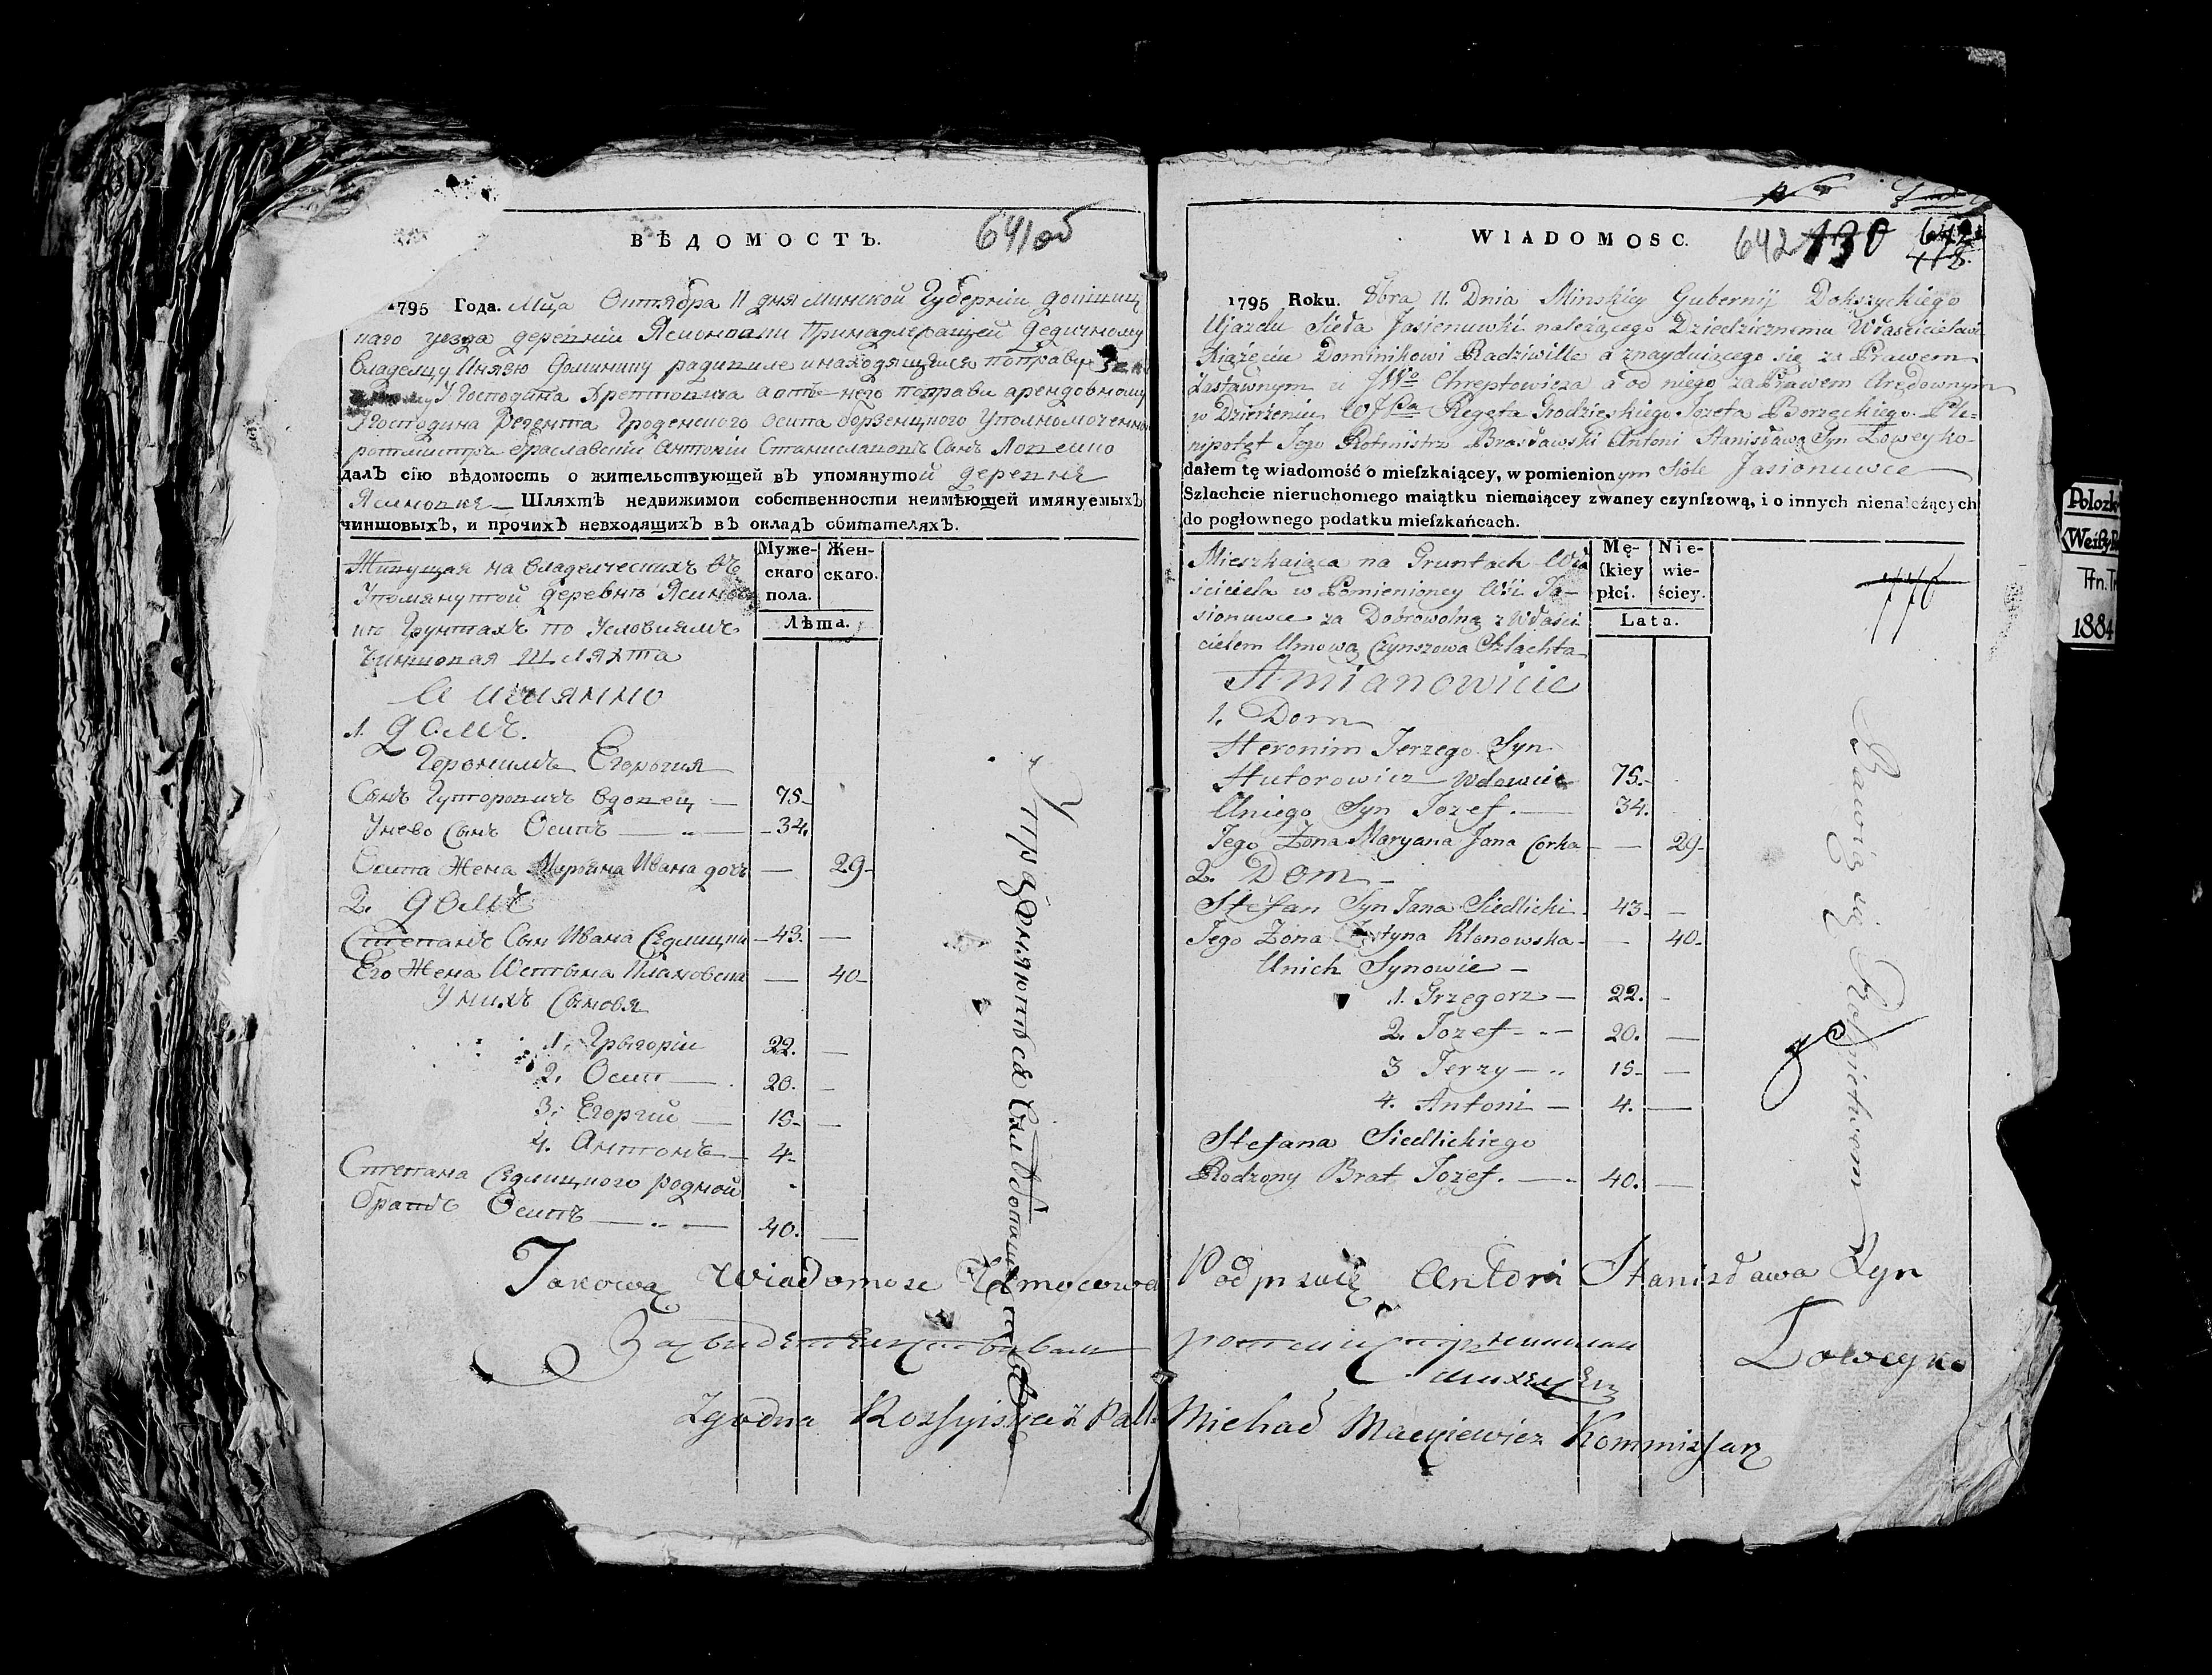 ВѢДОМОСТЬ.
641об
1795 Года. Мца Октября 11 дня Минской Губернии Докшиц
каго уезда деревнии Ясионовки Принадлежащей Дедичному
Владелцу Князю Доминику радзивиле инаходящейся поправу
Господина Хрептовича аотъ него поправи арендовному
Господина Регента Гроденского осипа борзенцкого Уполномоченны
ротмистръ браславский Антоний Станиславовъ Сынъ Ловейко
далъ сїю вѣдомость о жительствующей въ упомянутой деревне
Шляхтѣ недвижимои собственности неимѣющей имянуемыхъ
чиншовыхъ, и прочихъ невходящихъ въ окладъ обитателяхъ.
Муже-
скаго
пола.
Жен-
скаго.
Лѣта.
Живущая на владелческихъ въ
Упомянутой деревнѣ
Грунтахъ по Условиямъ
Чиншовая Шляхта
А имянно
1. Домъ.
Геронимъ Егорогия
Сынъ Гуторовичъ вдовец — 75.
Унево Сынъ Осипъ — 34.
Осипа Жена Марьяна Ивана дочь — 29
2. Домъ
Степанъ Сын Ивана Седлицки 43. —
Его Жена — 40
У нихъ Сыновя
1. Грыгорiи 22. —
2. Осип — 20. —
3. Егоргий — 15 —
4. Антонъ — 4
Степана Седлицкого родной
братъ Осипъ — 40. —
WIADOMOSC.
642 130
1795 Roku. 8bra 11. Dnia Minskiey Gubernij Dokszyckiego
Ujazdu Sieła Jasienuwki należącego Dziedzicznemu Właścicielowi
Xiążęciu Dominikowi Radziwille a znayduiącego się za Prawem
Zastawnym u JWo Chreptowicza a od niego za Prawem Arędownym
w Dzierżeniu Regęta Grodzieskiego Jozefa Borzęckiego. Ple=
nipotęt Jego Rotmistrz Brasławski Antoni Stanisława Syn Łoweyko-
dałem tę wiadomość o mieſzkaiącey, w pomienionym Siole Jasionuwce
Szlachcie nieruchomego maiątku niemaiącey zwaney czynſzową, i o innych nienależących
do pogłownego podatku mieſzkańcach.
Mę-
ſkiey
płci.
Nie-
wie-
ściey.
Lata.
Mieszkaiąca na Gruntach Wła
ściciela w Pomienioney Wsi Ja-
sionuwce za Dobrowolną z Właści
cielem Umową Czynszowa Szlachta
A mianowicie
1. Dom
Heronim Jerzego Syn
Hutorowicz Wdowiec 75.
Uniego Syn Jozef. — 34.
Jego Żona Maryana Jana Corka — 29
2. Dom
Stefan Syn Jana Siedlicki 43. —
Jego Żona Klonowska — 40
Unich Synowie —
1. Grzegorz — 22. —
2. Jozef — 20. —
3 Jerzy — 15 —
4. Antoni — 4. —
Stefana Siedlickiego
Rodzony Brat Jozef. — 40. —
Takową Wiadomosc Umocowa Podpisuię Antoni Stanisława Syn
Łoweyko
Zgodna
Michał Macyiewicz Kommissarz
1884